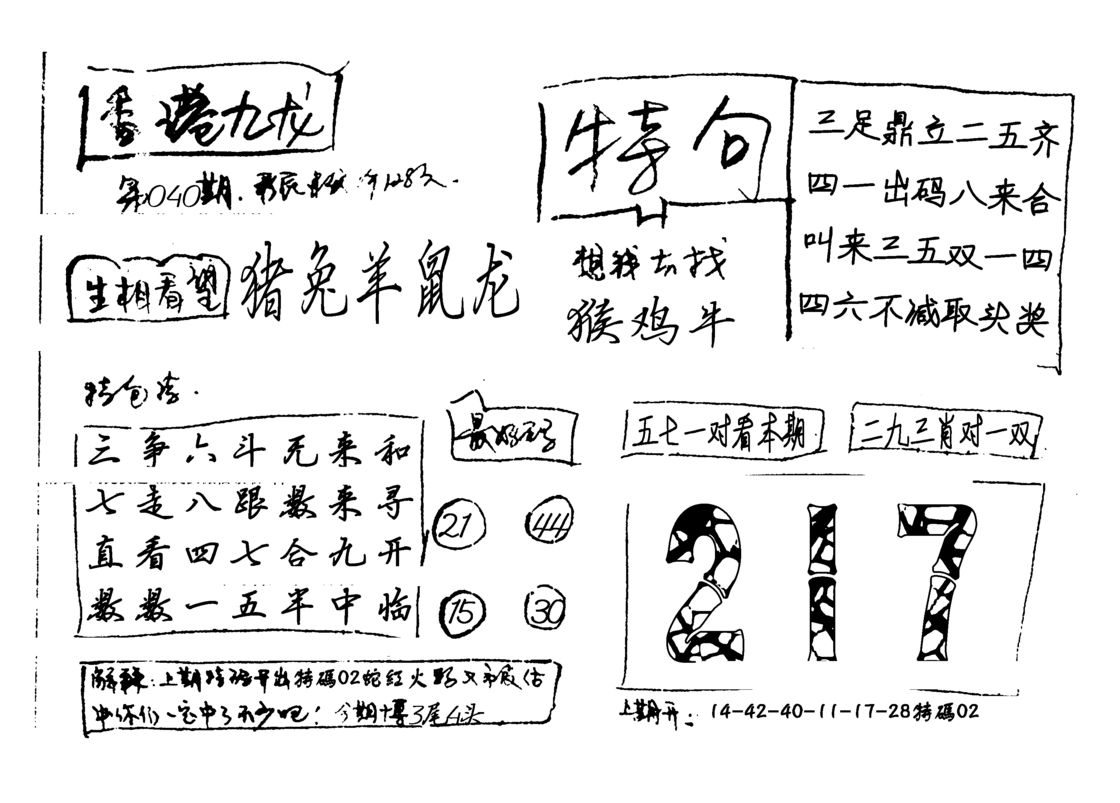 香港九龙
第040期.
生相看望
猪兔羊鼠龙
特句
想我去找
猴鸡牛
三足鼎立二五齐
四一出码八来合
叫来三五双一四
四六不减取头奖
特包
三争六斗无来和
七走八跟数来寻
直看四七合九开
数数一五半中临
最好
21 44
15 30
五七一对看本期
二九三肖对一双
217
解: 上期特码开出特碼02蛇红火
中你们一定中了不少吧! 今期博3尾4头
上期开: 14-42-40-11-17-28特碼02